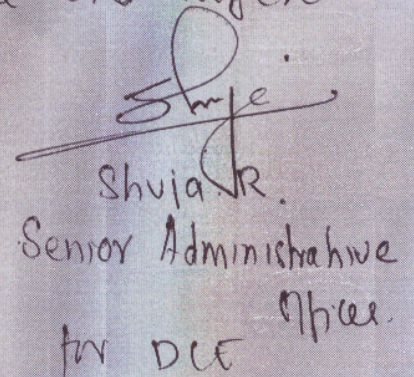 Shuja R.
Senior Administrative
Officer
for DCE